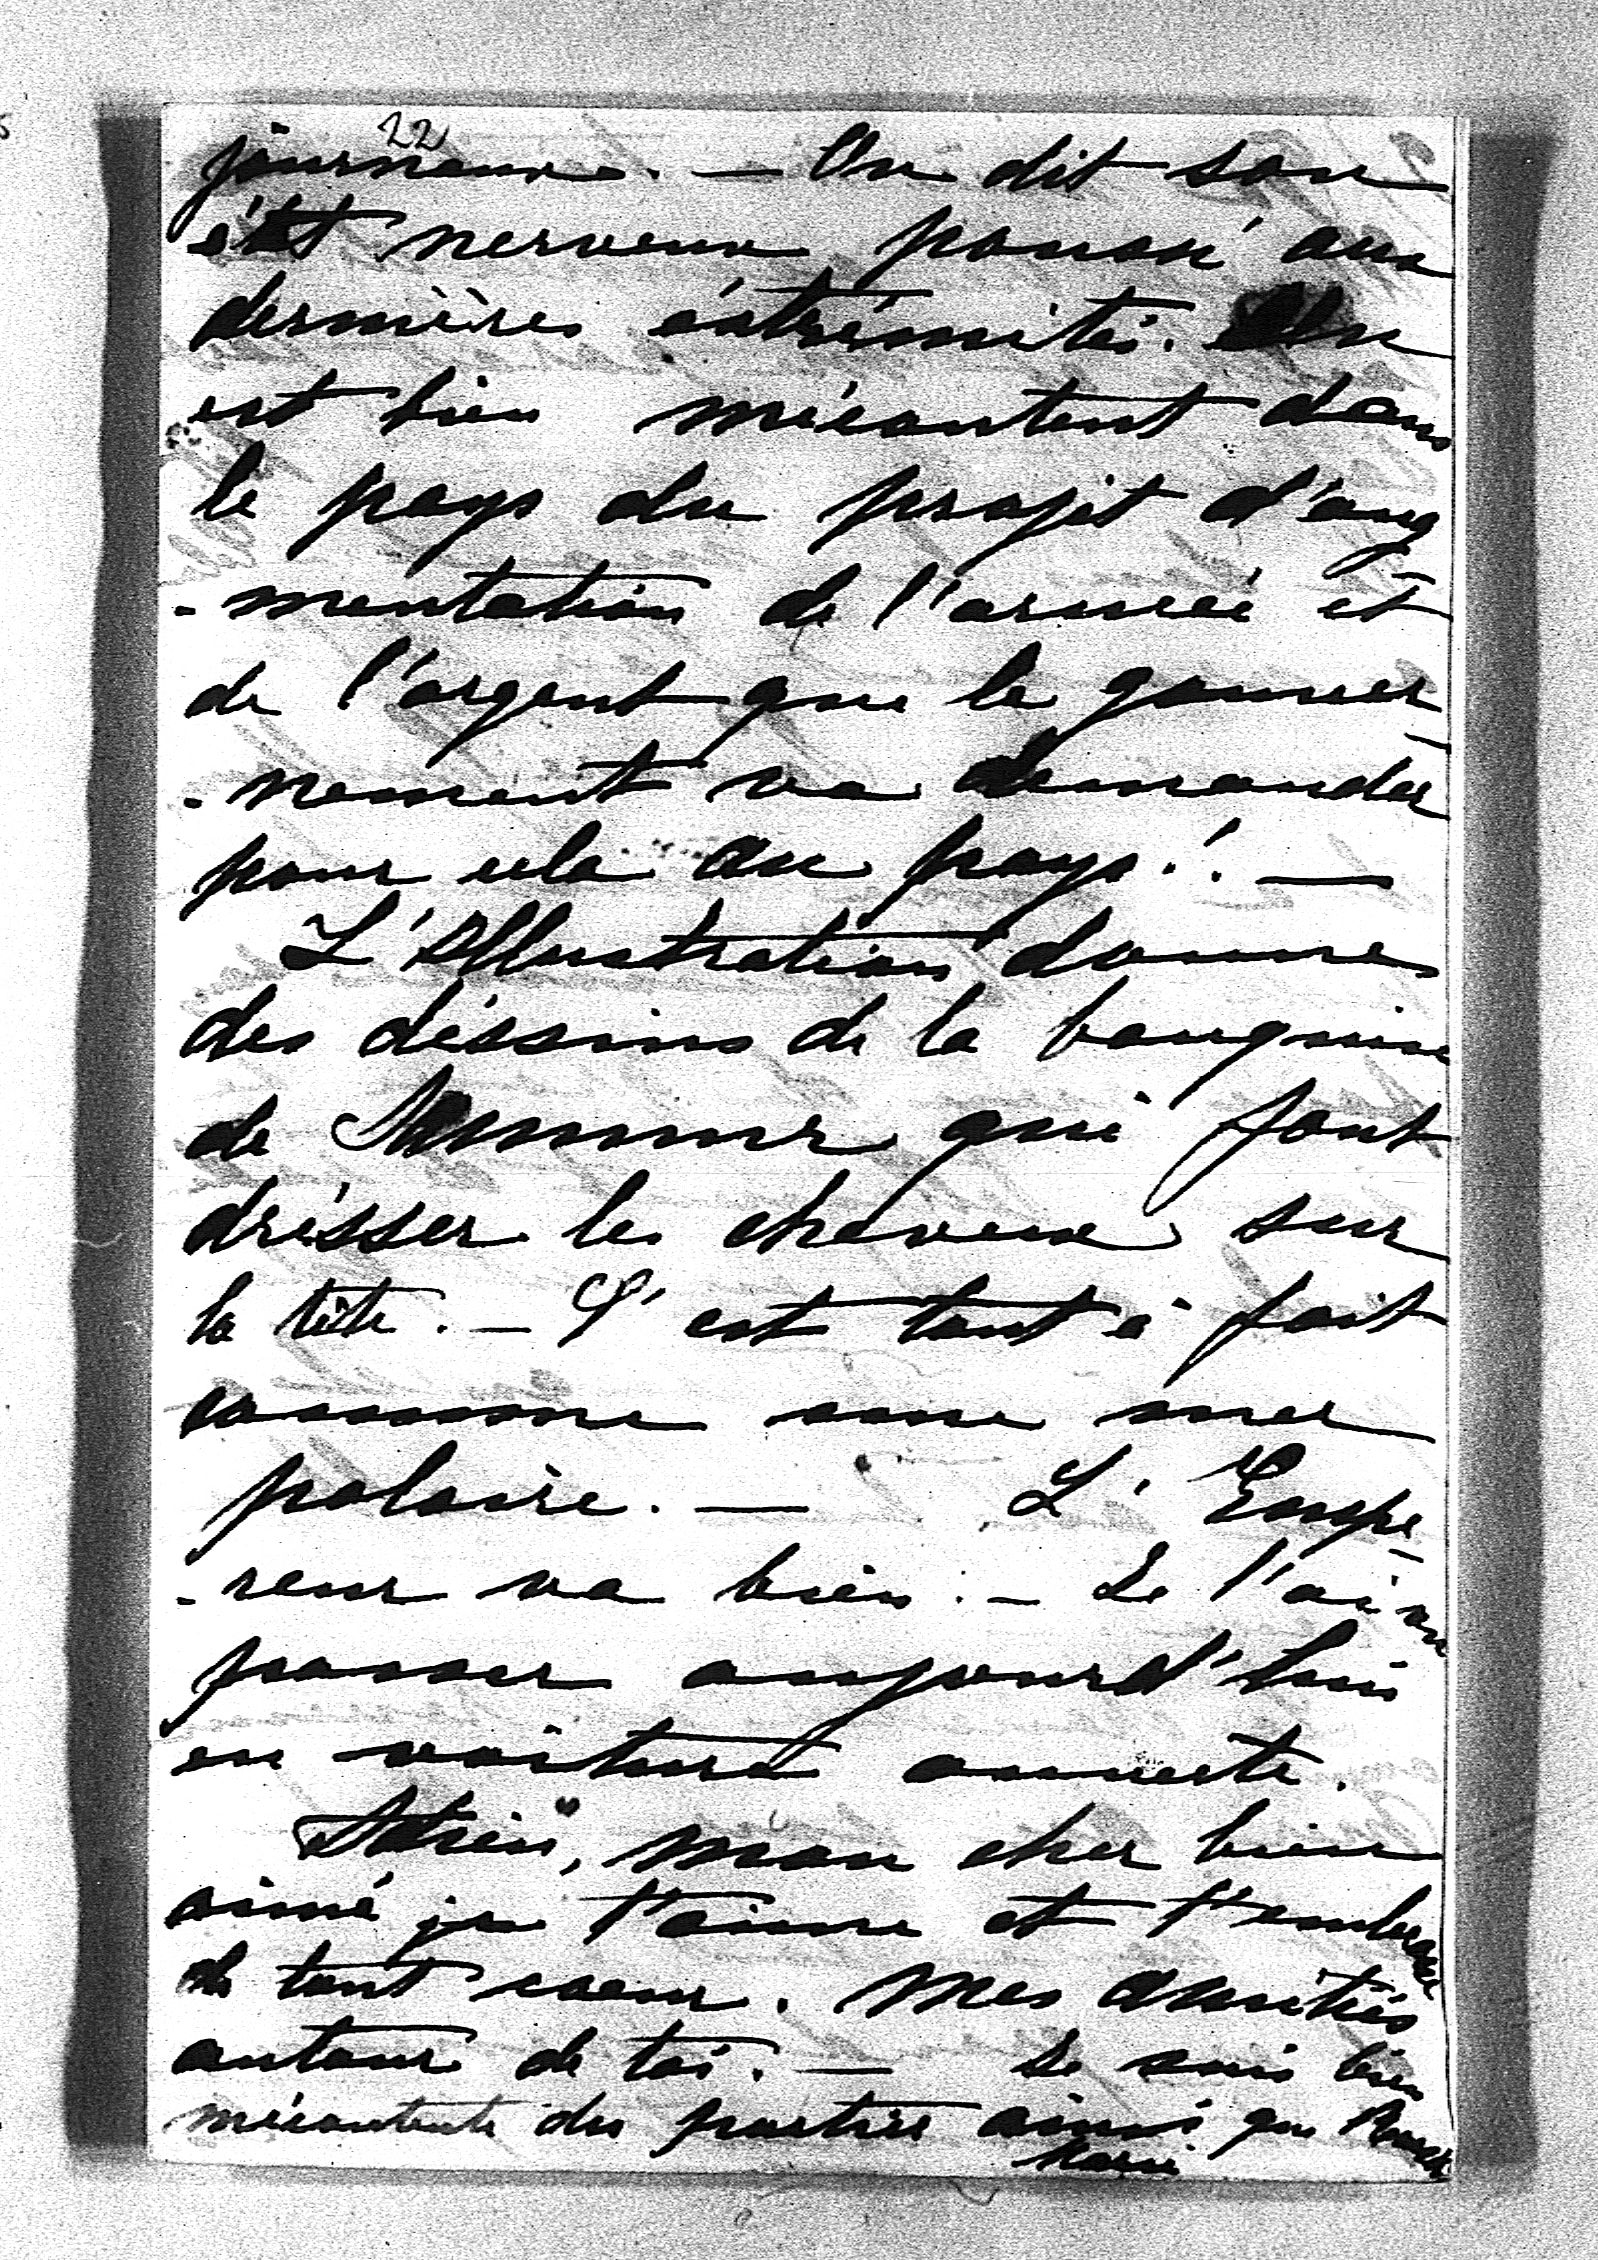 22
journaux. — On dit son
état nerveux poussé aux
dernières éxtrémités. On
est bien mécontent dans
le pays du projet d'aug
-mentation de l'armée et
de l'argent que le gouver
-nement va demander
pour cela au pays!. —
L'Illustration donne
des déssins de la banquise
de Saumur qui font
drésser les cheveux sur
la tête. — C'est tout à fait
comme une mer
polaire. — L'Empe
-reur va bien. — Je l'ai vu
passer aujourd'hui
en voiture ouverte.
Adrien, mon cher bien
aimé je t'aime et t'embrasse
de tout coeur. Mes amitiés
autour de toi. — Je suis bien
mécontente du portier ainsi que
Marie